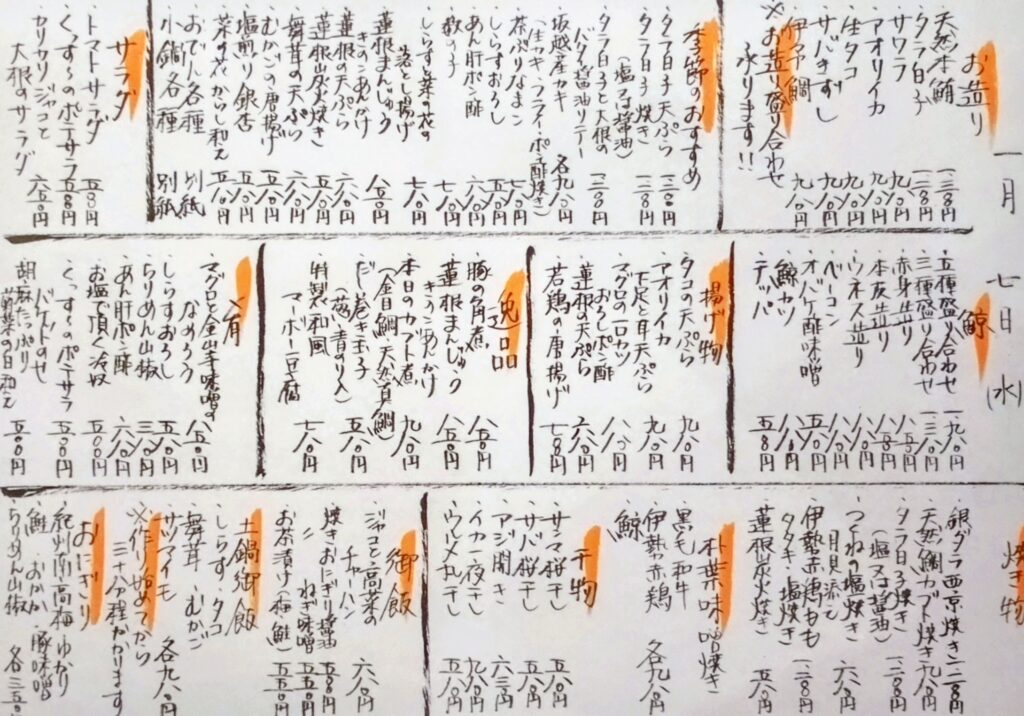 一月七日(水)
お造り
・天然本鮪 一二三八〇円
・タラ白子 一二八〇円
・サワラ 九八〇円
・アオリイカ 九八〇円
・生タコ 九八〇円
・サバきずし 九八〇円
・伊予鯛 九八〇円
※お造り盛り合わせ
承ります!!
季節のおすすめ
・タラ白子天ぷら 一二八〇円
・タラ白子焼き 一二八〇円
(塩又は醤油)
・タラ白子と大根の
バター醤油ソテー 一二八〇円
・坂越産カキ 各九八〇円
(生カキ・フライ・ポン酢焼き)
・茶ぶりなまこ 七八〇円
・しらすおろし 五八〇円
・あん肝ポン酢 七八〇円
・数の子 七八〇円
・しらす菜の花の
落とし揚げ 七八〇円
・蓮根まんじゅう
きのこあんかけ 八五〇円
・蓮根の天ぷら 六八〇円
・蓮根炭火焼き 五八〇円
・舞茸の天ぷら 六八〇円
・むかごの唐揚げ 五八〇円
・塩煎り銀杏 五八〇円
・菜の花からし和え 五八〇円
・おでん各種 別紙
・小鍋各種 別紙
サラダ
・トマトサラダ 五八〇円
・くっす〜のポテサラ 五八〇円
・カリカリジャコと
大根のサラダ 六八〇円
鯨
・五種盛り合わせ 一九八〇円
・三種盛り合わせ 一三八〇円
・赤身造り 八八〇円
・本皮造り 八八〇円
・ウネス造り 八八〇円
・ベーコン 八八〇円
・オバケ酢味噌 五八〇円
・鯨カツ 八八〇円
・テッパ 五八〇円
揚げ物
・タコの天ぷら 九八〇円
・アオリイカ
下足と耳天ぷら 九八〇円
・マグロの一口カツ
おろしポン酢 八八〇円
・蓮根の天ぷら 六八〇円
・若鶏の唐揚げ 七八〇円
逸品
・豚の角煮 八五〇円
・蓮根まんじゅう
きのこあんかけ 八五〇円
・本日のカブト煮 九八〇円
(金目鯛、天然真鯛)
・だし巻き玉子 五八〇円
(葱、青のり入)
・特製和風
マーボー豆腐 七八〇円
〆肴
・マグロと金山寺味噌の
なめろう 八五〇円
・しらすおろし 五八〇円
・ちりめん山椒 三八〇円
・あん肝ポン酢 六八〇円
・お塩で頂く冷奴 五〇〇円
・くっす〜のポテサラ
バゲットのせ 五〇〇円
・胡麻たっぷり
菊菜の白和え 五〇〇円
焼き物
・銀ダラ西京焼き 一二八〇円
・天然鯛カブト焼き 九八〇円
・タラ白子焼き 一二八〇円
(塩又は醤油)
・つくねの塩焼き 六八〇円
月見添え
・伊勢赤鶏もも 一二八〇円
タタキ・塩焼き
・蓮根炭火焼き 五八〇円
朴葉味噌焼き
・黒毛和牛
・伊勢赤鶏 各九八〇円
・鯨
干物
・サンマ桜干し 五八〇円
・サバ桜干し 五八〇円
・アジ開き 六三〇円
・イカ一夜干し 九八〇円
・ウルメ丸干し 五八〇円
御飯
・ジャコと高菜の
チャーハン 六八〇円
・焼きおにぎり醤油 五〇〇円
・〃 ねぎ味噌 五五〇円
・お茶漬け(梅・鮭) 五五〇円
土鍋御飯
・しらす・タコ
舞茸 むかご
サツマイモ 各九八〇円
※作り始めてから
三十分程かかります
おにぎり
・紀州南高梅 ゆかり
鮭 おかか 豚味噌
ちりめん山椒 各三五〇